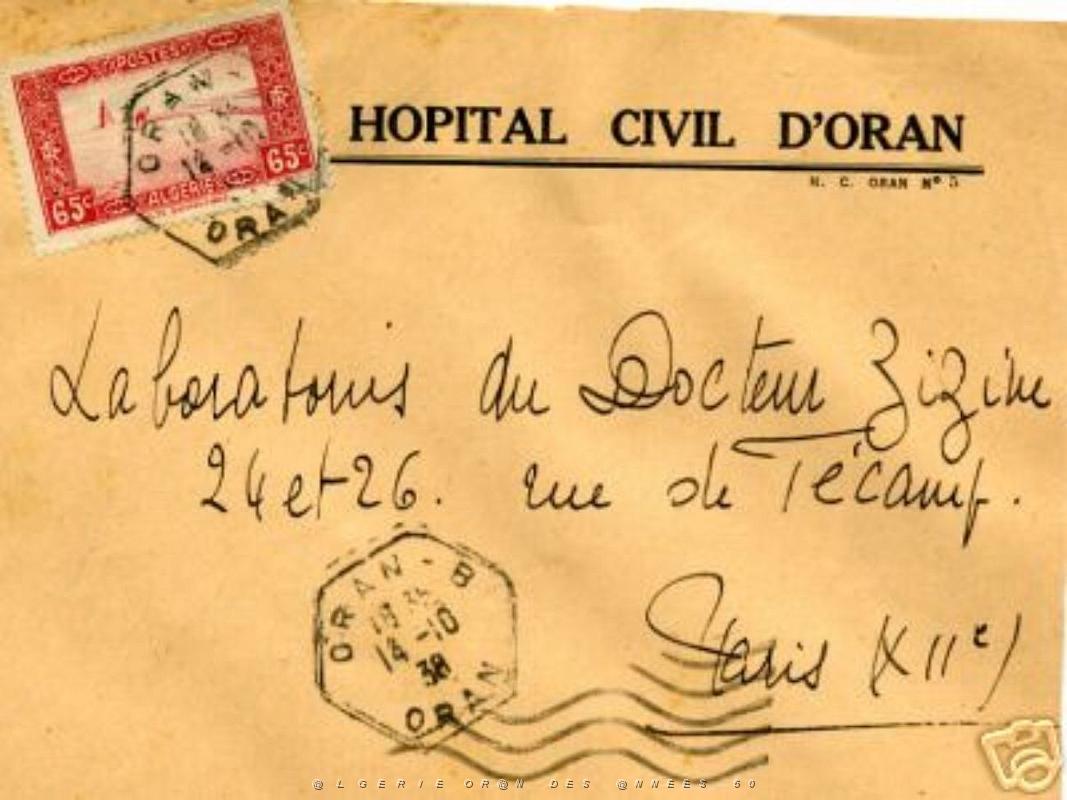 POSTES
65c 65c
ALGERIE
ORAN -
18 35
14 -10
ORAN
HOPITAL CIVIL D'ORAN
H. C. ORAN Nº 5
Laboratoires du Docteur Zizine
24 et 26. rue de Fécamp.
Paris (XIIe)
ORAN - B
18 35
14 -10
38
ORAN
@LGERIE OR@N DES @NNEES 60